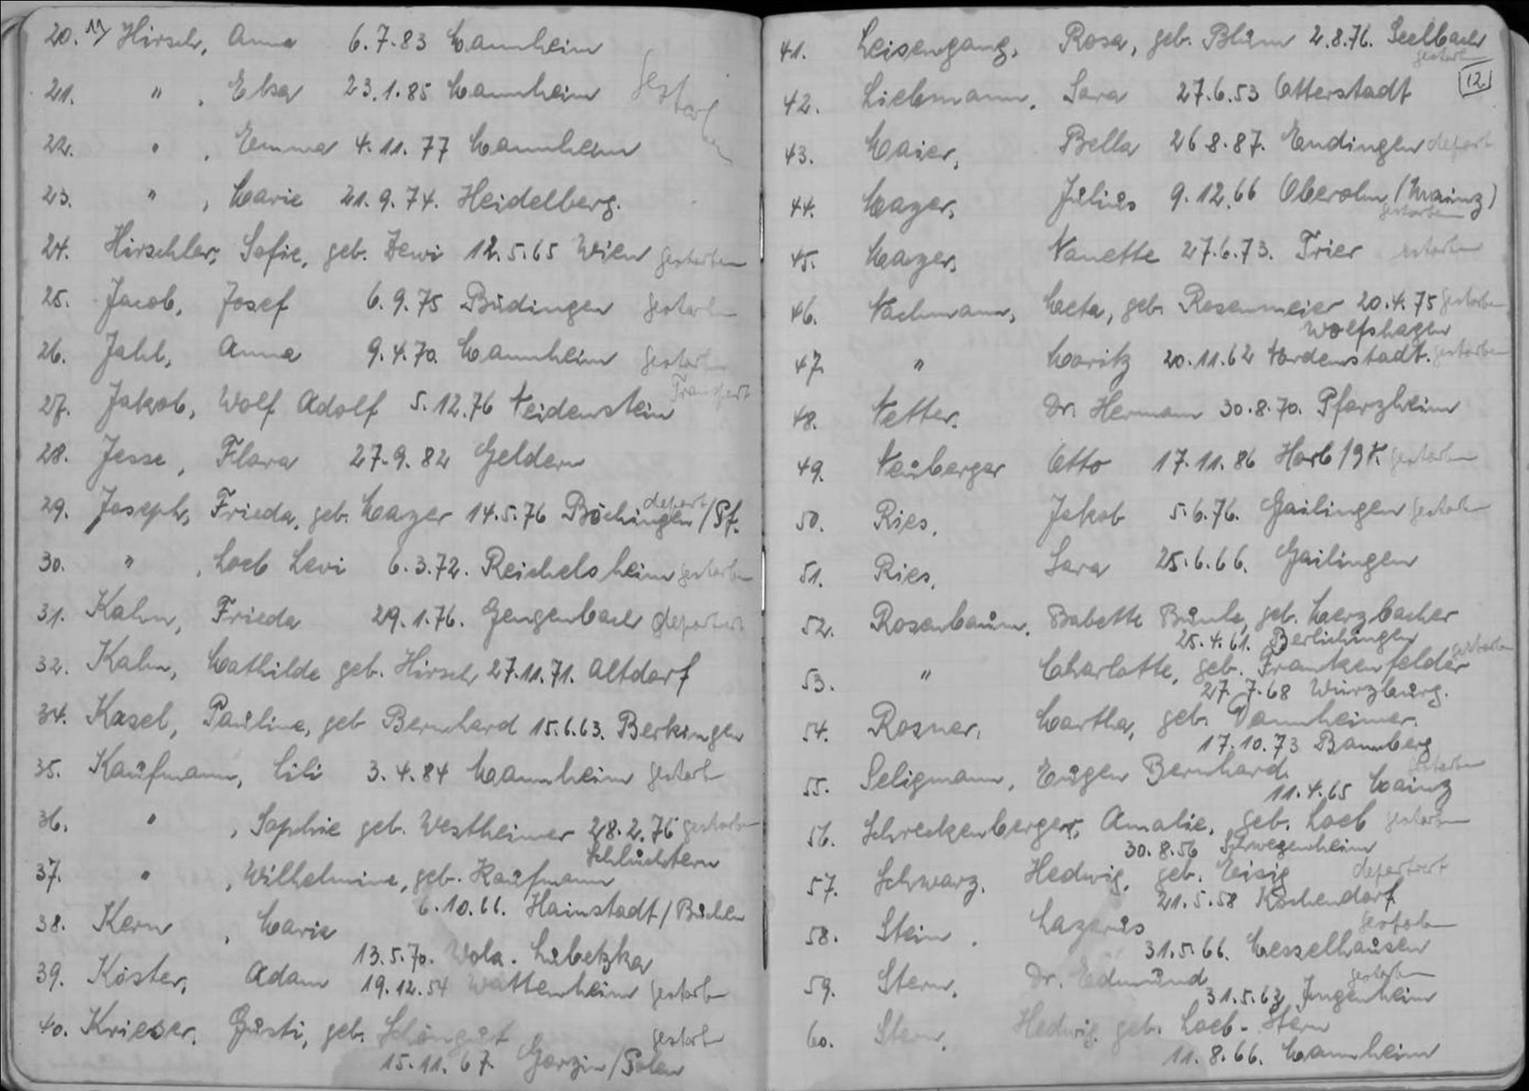 20. Hirsch, Anna 6.7.83 Mannheim
21. " , Elsa 23.1.85 Mannheim gestorben
22. " , Emma 4.11.77 Mannheim
23. " , Marie 21.9.74. Heidelberg.
24. Hirschler, Sofie, geb. Lewi 12.5.65 Wien gestorben
25. Jacob, Josef 6.9.75 Büdingen gestorben
26. Jahl, Anna 9.4.70. Mannheim gestorben
Transport
27. Jakob, Wolf Adolf 5.12.76 Neidenstein
28. Jesse, Flora 27.9.82 Geldern
29. Joseph, Frieda, geb. Mayer 14.5.76 Böchingen/Pf. deport
30. " , Loeb Levi 6.3.72. Reichelsheim gestorben
31. Kahn, Frieda 29.1.76. Gengenbach deportiert
32. Kahn, Mathilde geb. Hirsch 27.11.71. Altdorf
34. Kasel, Pauline, geb Bernhard 15.6.63. Berkingen
35. Kaufmann, Lili 3.4.84 Mannheim gestorb
36. " , Sophie geb. Westheimer 28.2.76 gestorben
Schlüchtern
37. " , Wilhelmine, geb. Kaufmann
6.10.66. Hainstadt/Buchen
38. Kern, Marie
13.5.70. Wola. Lubetzka
39. Köster, Adam 19.12.54 Wattenheim gestorb
40. Krieser, Gusti, geb. Schöngut gestorb
15.11.67. Gorzin/Polen
41. Leisengang, Rosa, geb. Blum 2.8.76. Seelbach
gestorb
12
42. Liebmann, Sara 27.6.53 Otterstadt
43. Maier, Bella 26 8.87. Endingen deport
44. Mayer, Julius 9.12.66 Oberolm (Mainz)
gestorben
45. Mayer, Nanette 27.6.73. Trier gestorben
46. Nachmann, Meta, geb. Rosenmeier 20.4.75 gestorben
Wolfshagen
47. " Moritz 20.11.62 Nordenstadt. gestorben
48. Netter, Dr. Hermann 30.8.70. Pforzheim
49. Neuberger Otto 17.11.86 Horb/9N. gestorben
50. Ries, Jakob 5.6.76. Gailingen gestorben
51. Ries, Sara 25.6.66. Gailingen
52. Rosenbaum, Babette Bunle, geb. Herzbacher
25.4.61. Berlichingen
53. " Charlotte, geb. Frankenfelder gestorben
27.7.68 Würzburg.
54. Rosner, Martha, geb. Dannheimer.
17.10.73 Bamberg
55. Seligmann, Eugen Bernhard gestorben
11.4.65 Mainz
56. Schreckenberger, Amalie, geb. Loeb gestorben
30.8.56 Schwegenheim
57. Schwarz, Hedwig, geb. Eisig deportiert
21.5.58 Kochendorf
58. Stein, Lazarus gestorben
31.5.66. Messelhausen
59. Stern, Dr. Edmund gestorben
31.5.62 Jugenheim
60. Stern, Hedwig geb. Loeb-Stern
11.8.66. Mannheim